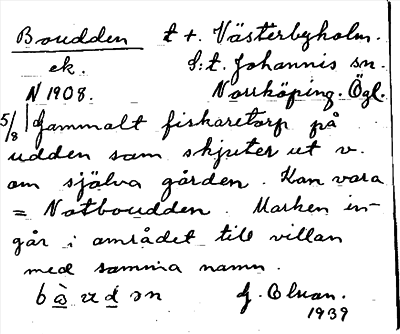 Boudden t t. Västerbyholm.
ek. S:t. Johannis sn.
N 1908. Norrköping. Ögl.
5/8 Gammalt fiskaretorp på
udden som skjuter ut v.
om själva gården. Kan vara
= Notboudden. Marken in-
går i området till villan
med samma namn.
G. Olsson.
1939